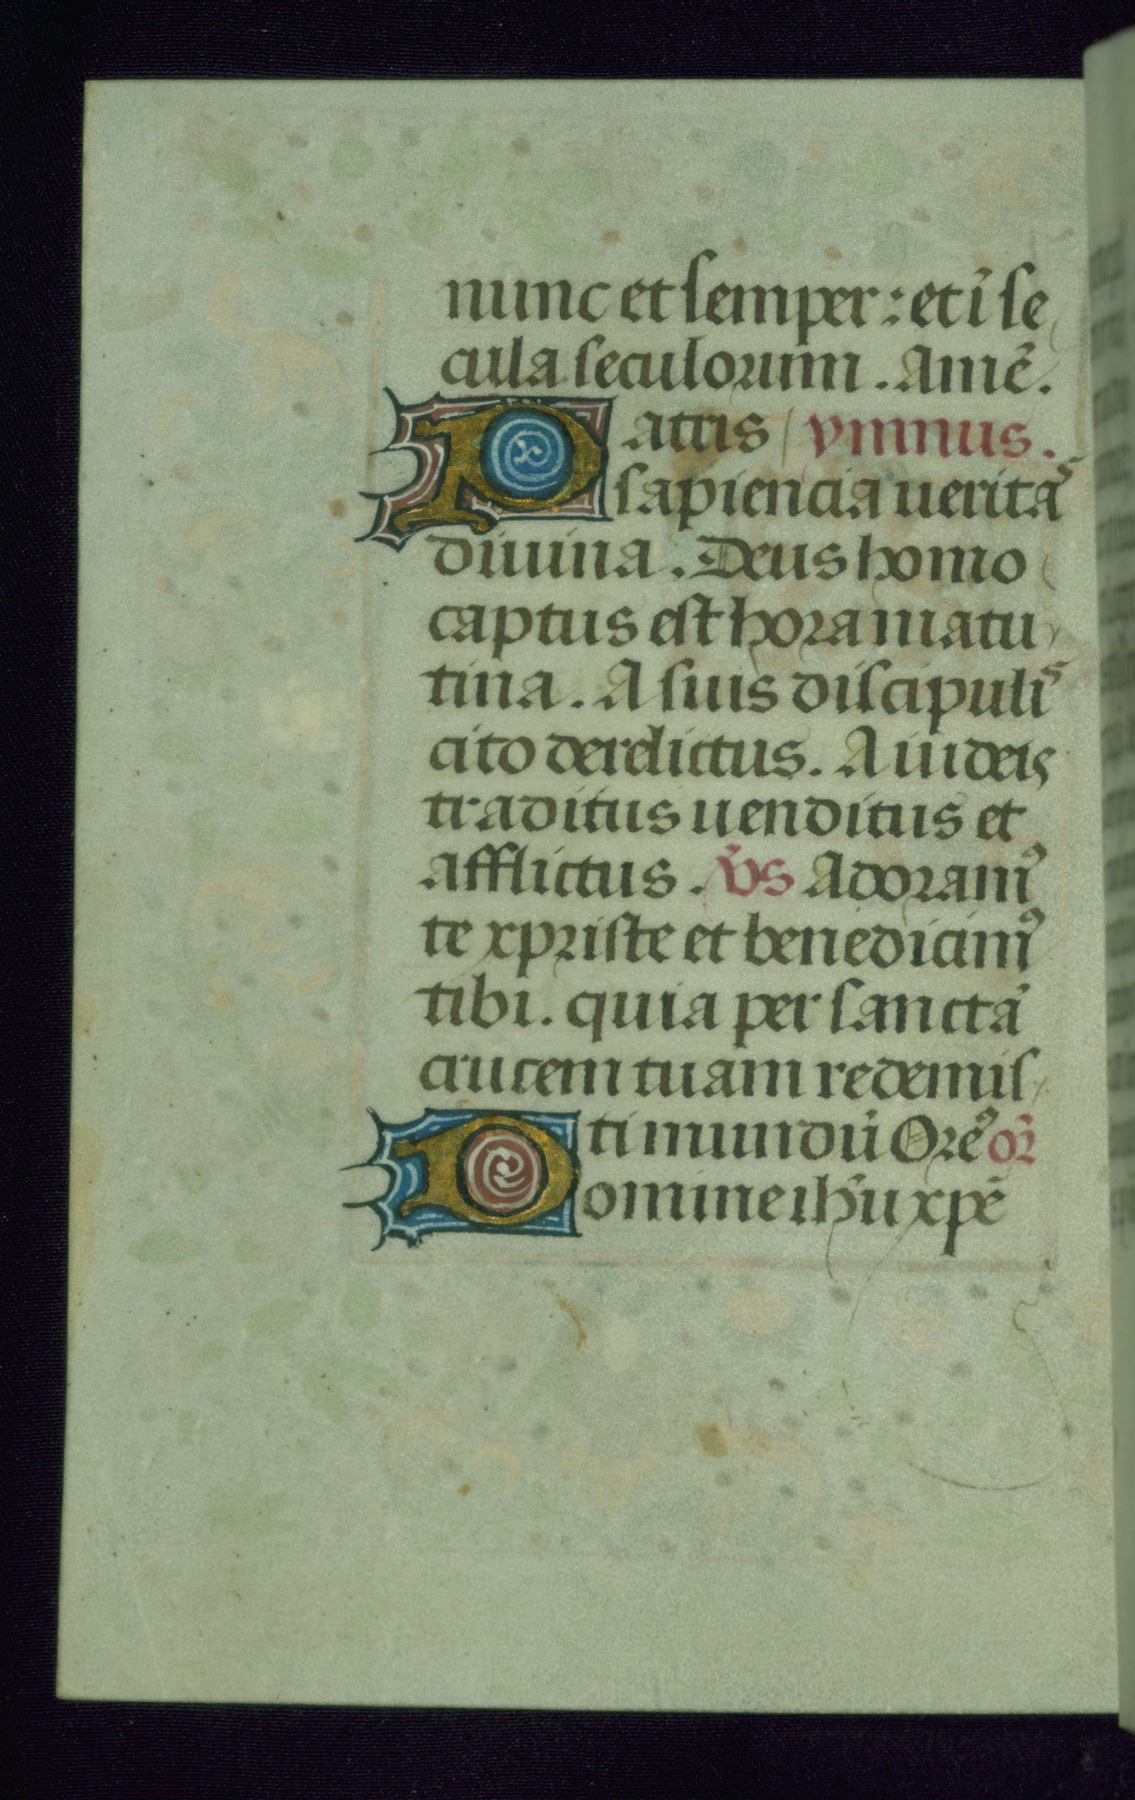 nunc et semper : et ī se
cula seculorum . Amē .
Patris ymnus .
sapiencia veritaˢ
diuina . Deus homo
captus est hora matu
tina . A suis discipuliˢ
cito derelictus . A iudeis
traditus uenditus et
afflictus . v̄s Adoramꝰ
te xpriste et benedicimꝰ
tibi . quia per sanctā
crucem tuam redemis
ti mundū Oremꝰ or̄
Domine ihū xpē